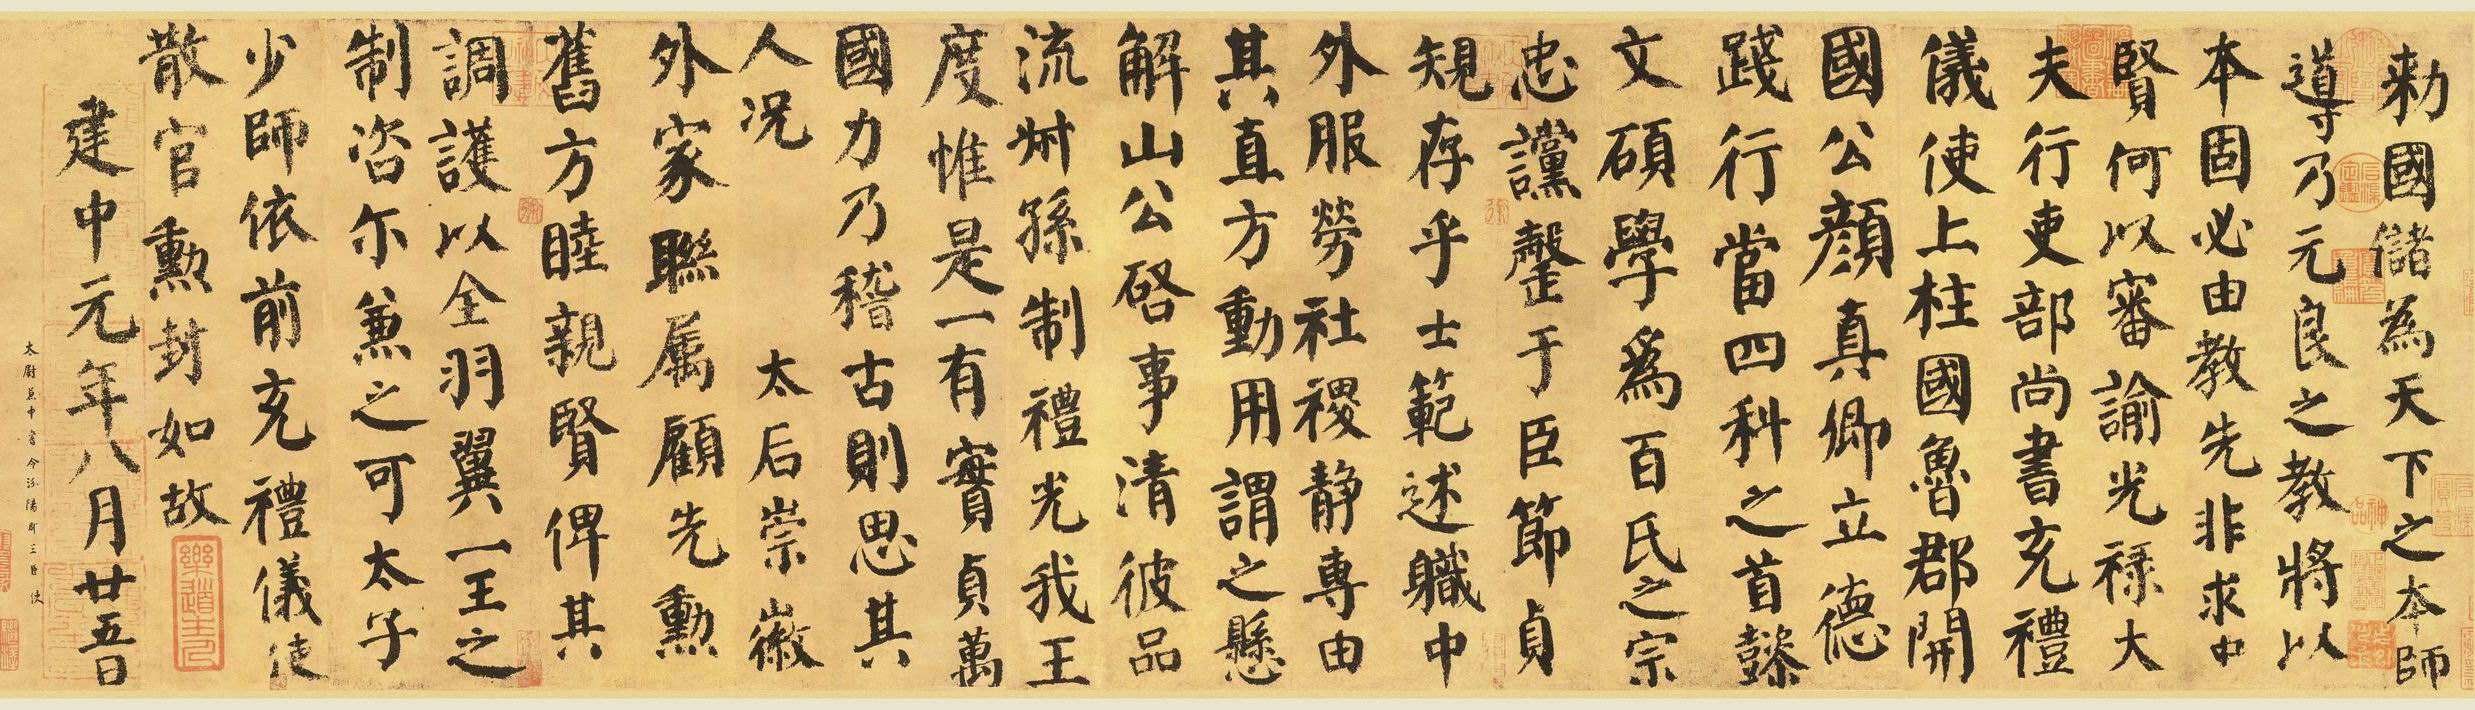 勑國儲為天下之本師
導乃元良之教將以
本固必由教先非求中
賢何以審諭光祿大
夫行吏部尚書充禮
儀使上柱國魯郡開
國公顏真卿立德
踐行當四科之首懿
文碩學為百氏之宗
忠讜罄于臣節貞
規存乎士範述職中
外服勞社稷靜專由
其直方動用謂之懸
解山公啓事清彼品
流叔孫制禮光我王
度惟是一有實貞萬
國力乃稽古則思其
人況 太后崇徽
外家聯属顧先勳
舊方睦親賢俾其
調護以全羽翼一王之
制咨尔兼之可太子
少師依前充禮儀使
散官勳封如故
建中元年八月廿五日
太尉兼中書令汾陽郡王臣使
樂道主人